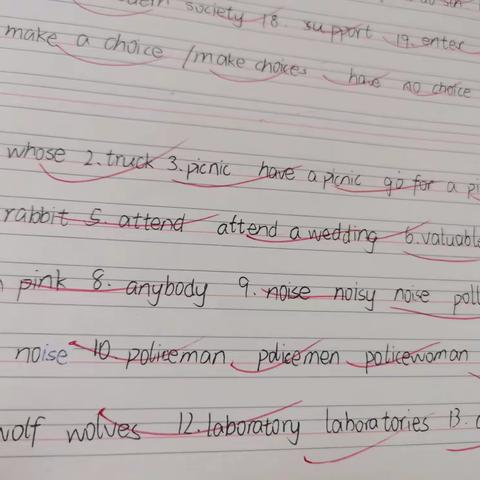 society 18. support 19. enter
make a choice / make choices have no choice
whose 2. truck 3. picnic have a picnic go for a
rabbit 5. attend attend a wedding 6. valuable
pink 8. anybody 9. noise noisy noise
noise 10. policeman policemen policewoman
wolf wolves 12. laboratory laboratories 13.